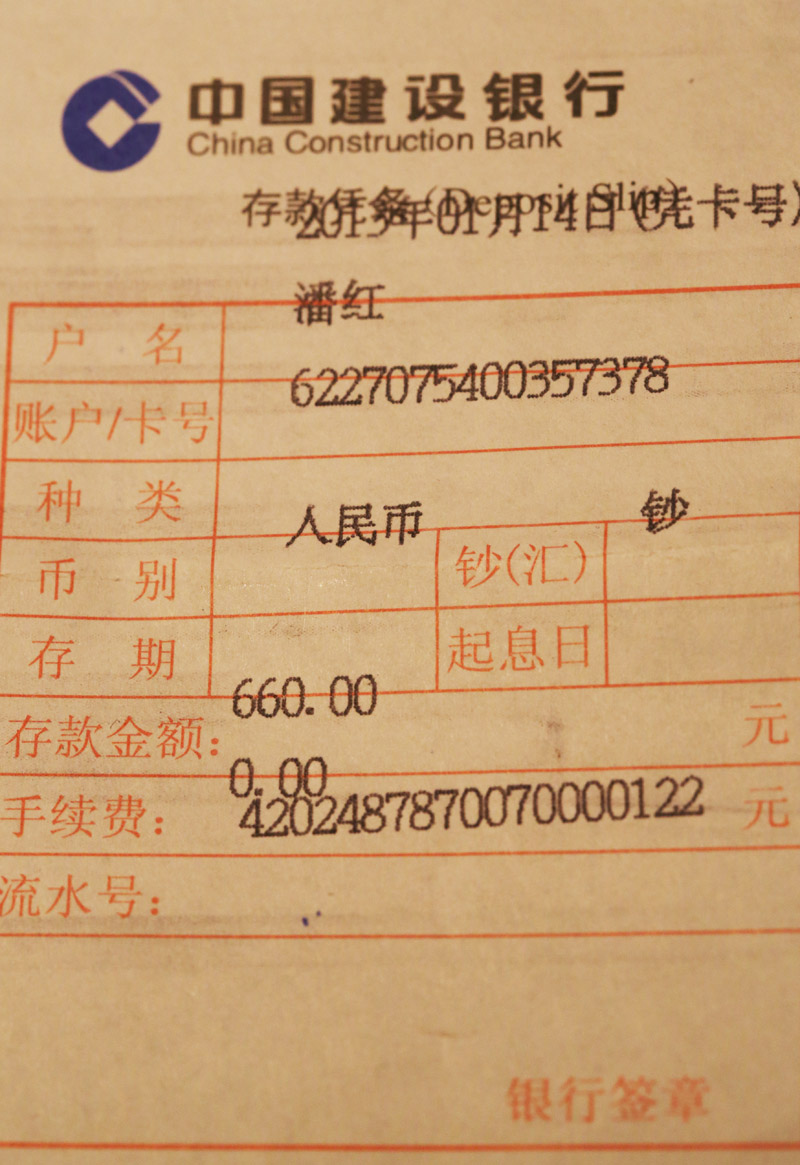 中国建设银行
China Construction Bank
存款凭条 (Deposit Slip)
2015年01月14日(凭卡号)
潘红
户 名
6227075400357378
账户/卡号
种 类
人民币 钞
币 别 钞(汇)
存 期 起息日
660.00
存款金额: 元
0.00
4202487870070000122
手续费: 元
流水号:
银行签章